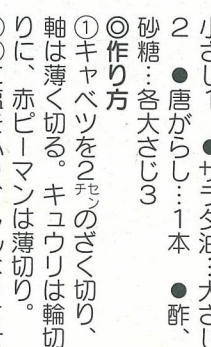 小さじ1 ●サラダ油…大さじ
2 ●唐がらし…1本 ●酢、
砂糖…各大さじ3
◎作り方
①キャベツを2センのざく切り、
軸は薄く切る。キュウリは輪切
りに、赤ピーマンは薄切り。